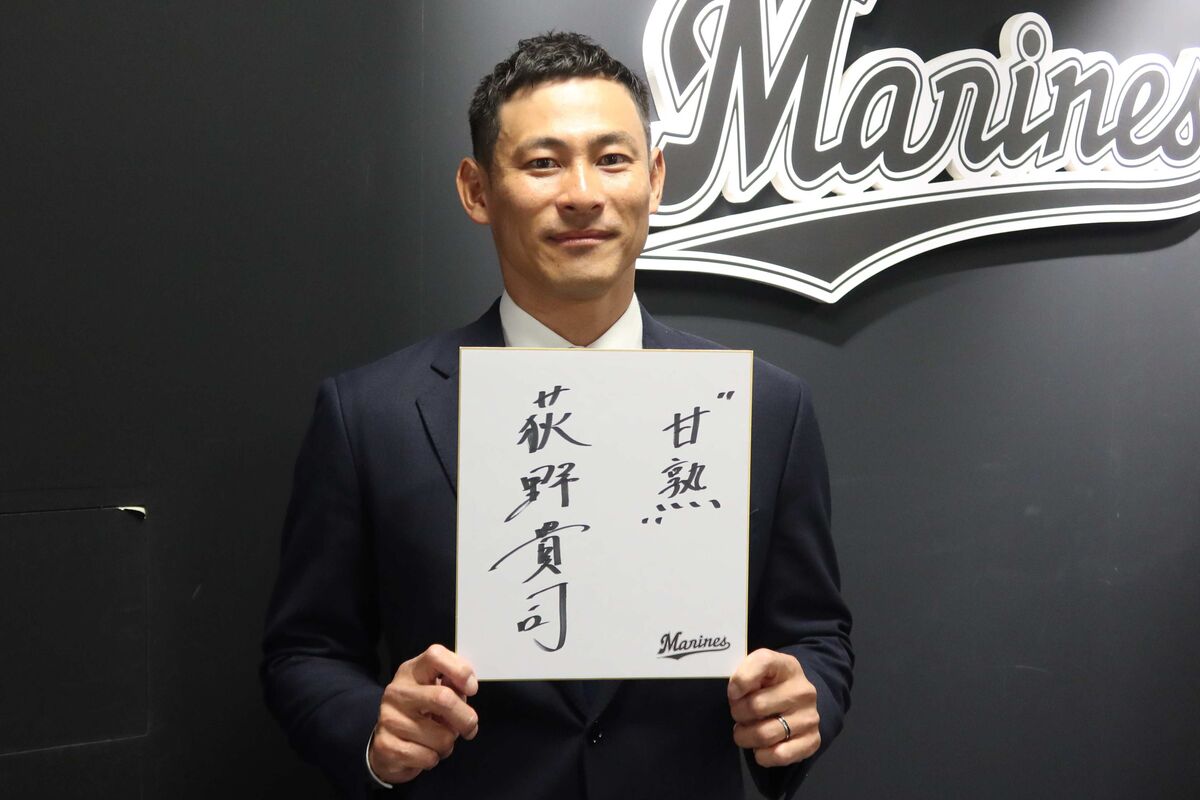 Marines
"甘熟"
荻野貴司
Marines